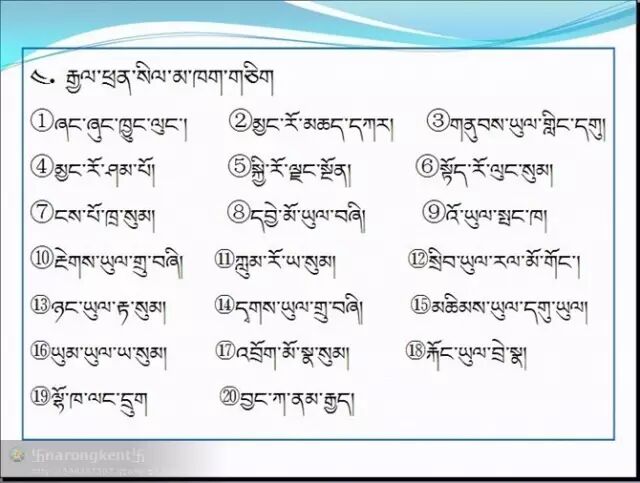 ༤. རྒྱལ་ཕྲན་སིལ་མ་ཁག་གཅིག
①ཞང་ཞུང་ཁྱུང་ལུང་། ②མྱང་རོ་མཆད་དཀར། ③གནུབས་ཡུལ་གླིང་དགུ།
④མྱང་རོ་ཤམ་པོ། ⑤སྐྱི་རོ་ལྗང་སྔོན། ⑥སྟོད་རོ་ལུང་སུམ།
⑦ངས་པོ་ཁྲ་སུམ། ⑧དབྱེ་མོ་ཡུལ་བཞི། ⑨འོ་ཡུལ་སྤང་ཁ།
⑩རྔེགས་ཡུལ་གྲུ་བཞི། ⑪ཀླུམ་རོ་ཡ་སུམ། ⑫སྲིབ་ཡུལ་རལ་མོ་གོང་།
⑬ཉང་ཡུལ་རྟ་སུམ། ⑭དྭགས་ཡུལ་གྲུ་བཞི། ⑮མཆིམས་ཡུལ་དགུ་ཡུལ།
⑯ཡུམ་ཡུལ་ཡ་སུམ། ⑰འབྲོག་མོ་སྣ་སུམ། ⑱རྐོང་ཡུལ་བྲེ་སྣ།
⑲ལྷོ་ཁ་ལང་དྲུག ⑳བྱང་ཀ་ནམ་རྒྱད།
卐narongkent卐